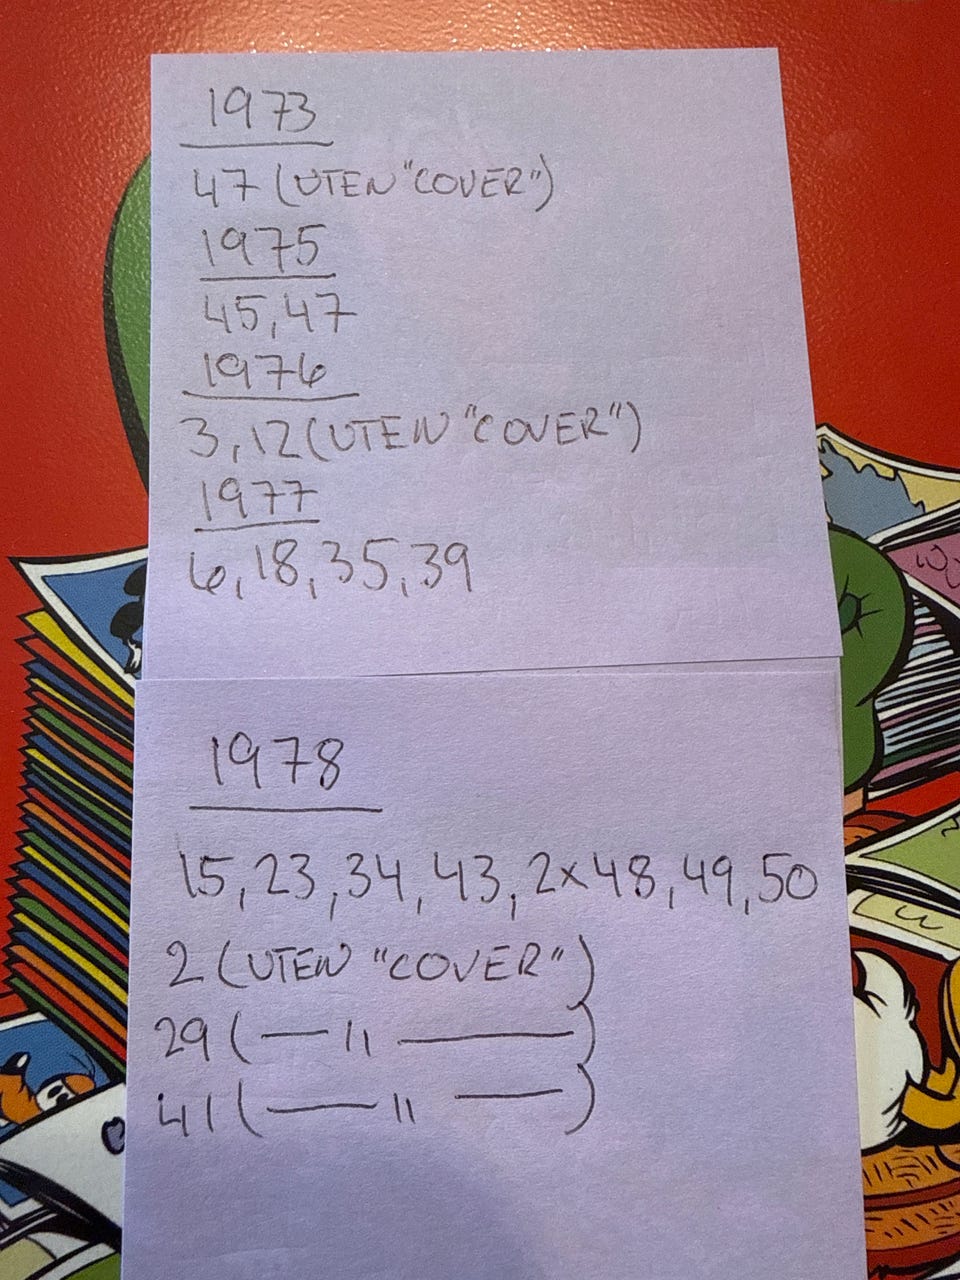 1973
47 (UTEN "COVER")
1975
45, 47
1976
3, 12 (UTEN "COVER")
1977
6, 18, 35, 39
1978
15, 23, 34, 43, 2x48, 49, 50
2 (UTEN "COVER")
29 ( — " — )
41 ( — " — )